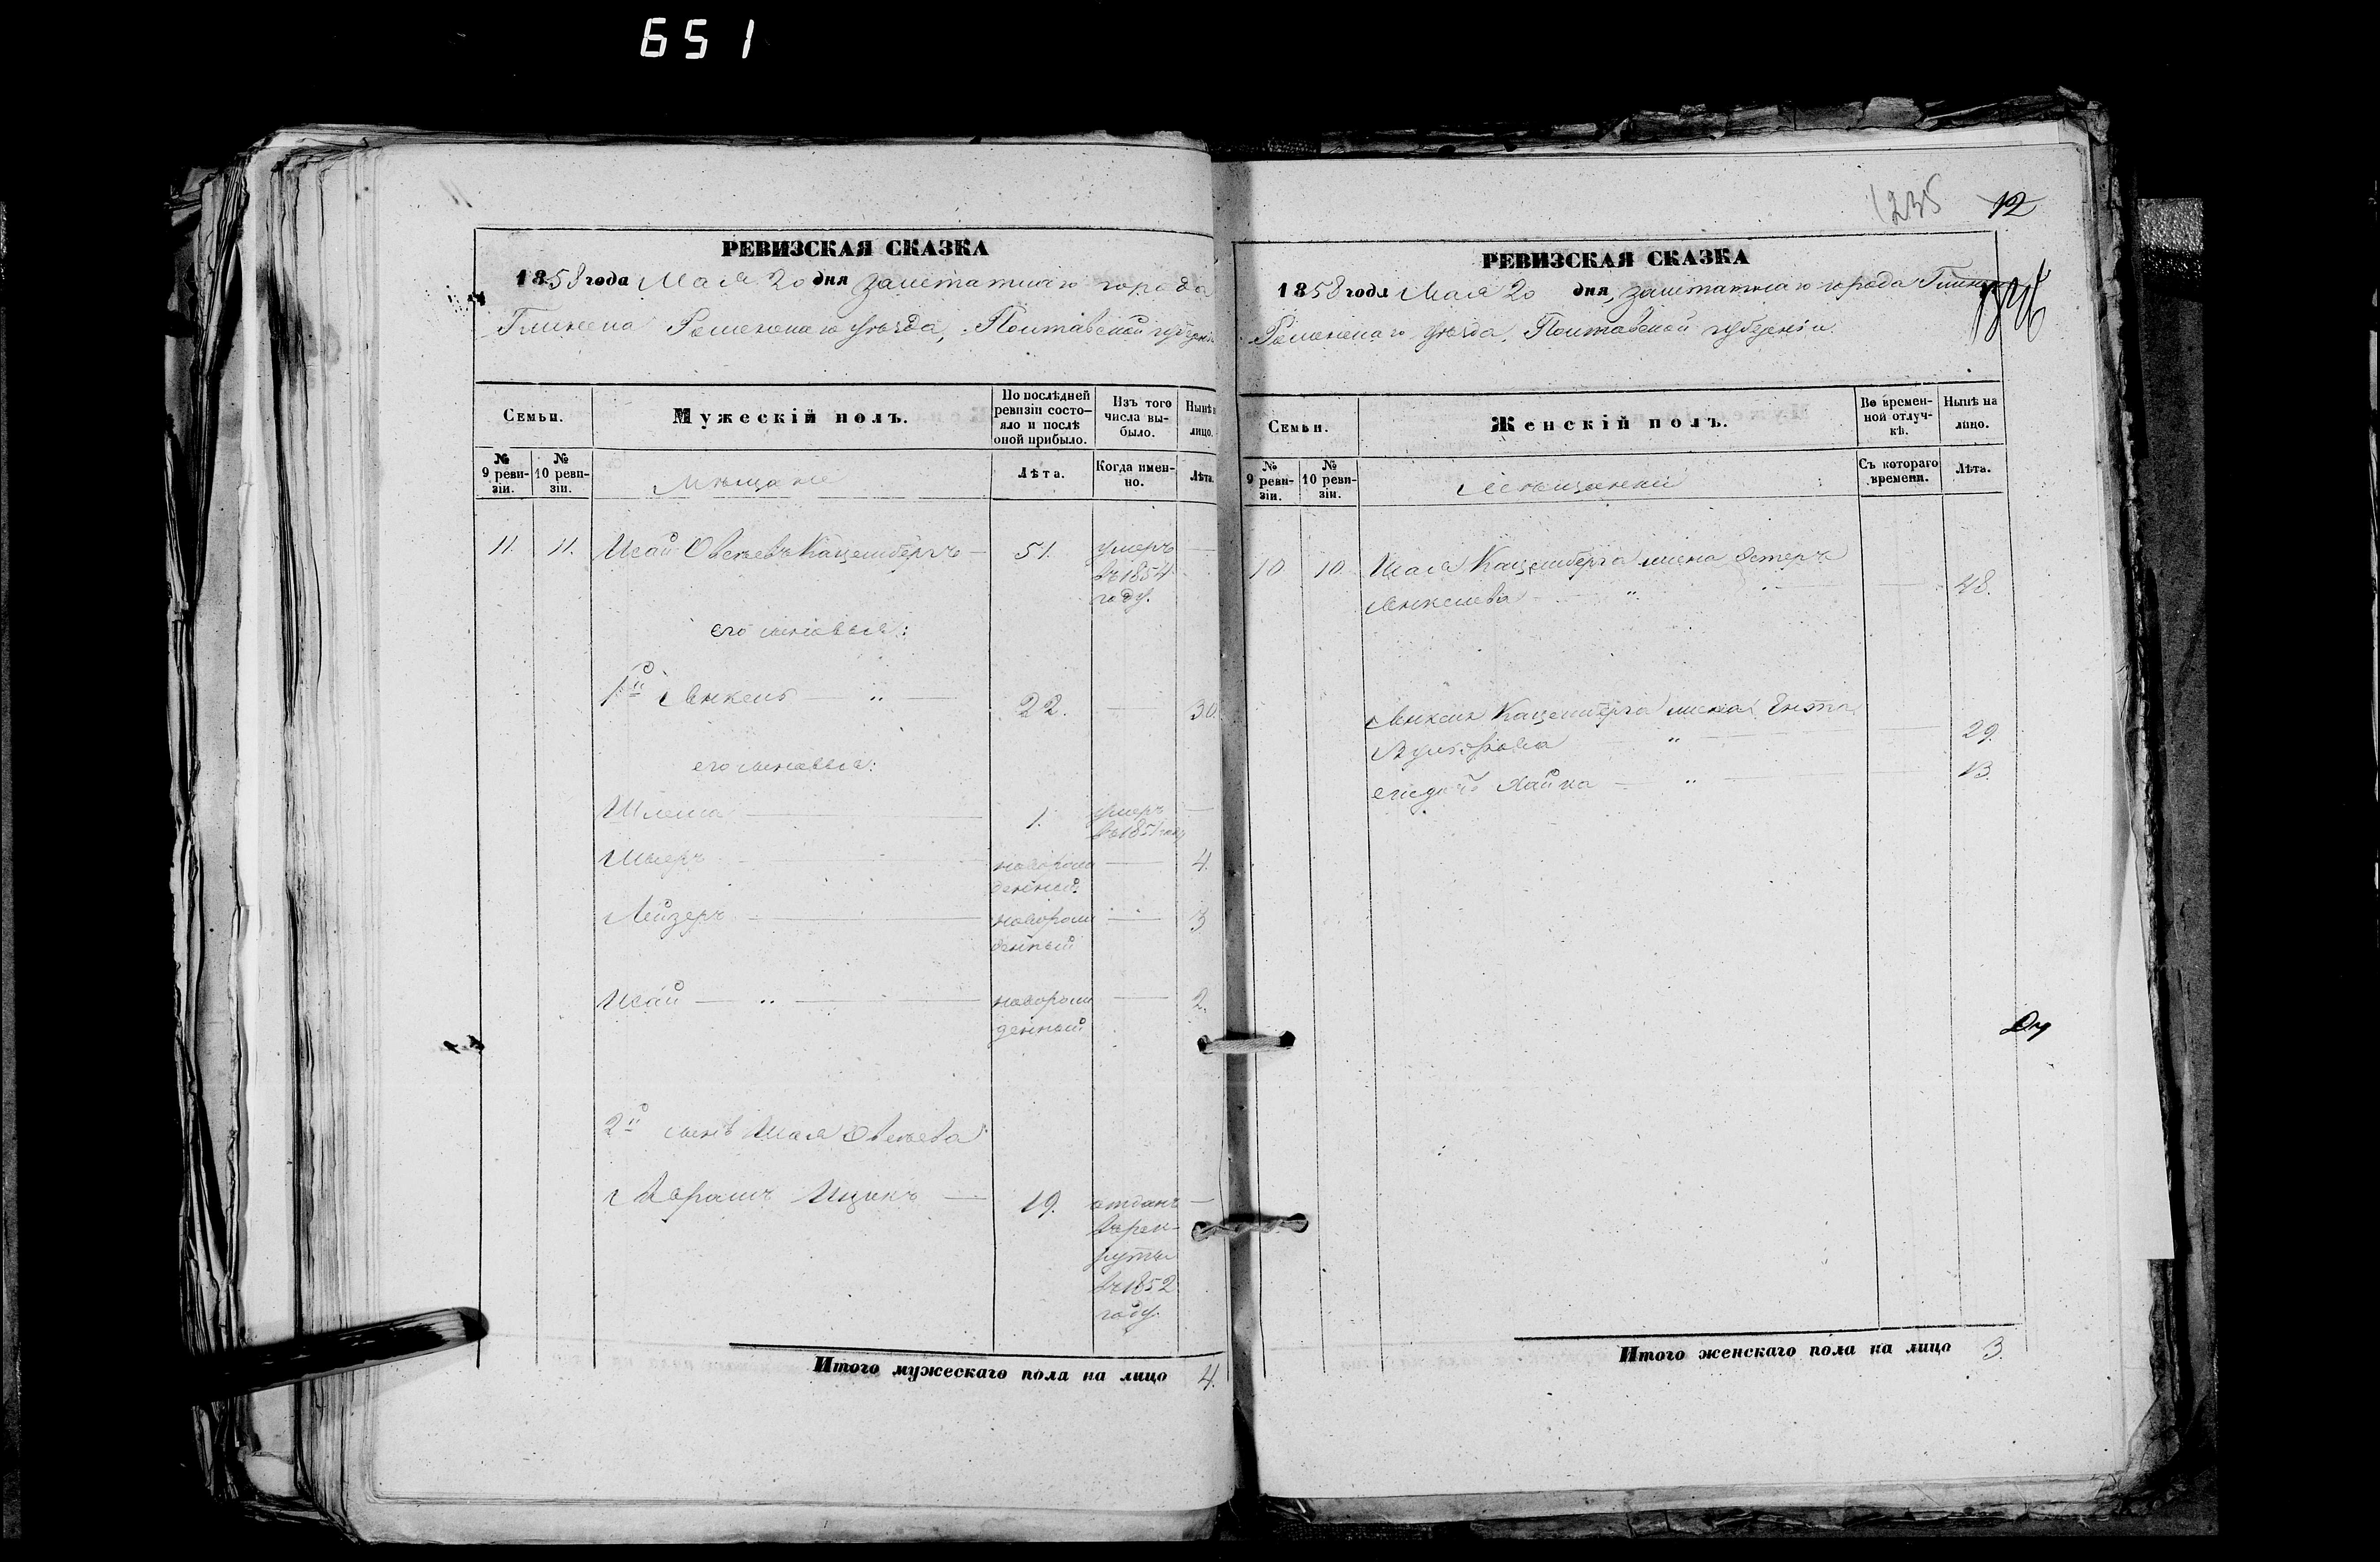 651
РЕВИЗСКАЯ СКАЗКА
1858 года Мая 20 дня заштатнаго города
Глинска Роменскаго уѣзда, Полтавской губерніи
Семьи.
Мужескій полъ.
По послѣдней ревизіи состояло и послѣ оной прибыло.
Изъ того числа выбыло.
Нынѣ
лицо.
№ 9 ревизіи.
№ 10 ревизіи.
Мѣщане
Лѣта.
Когда именно.
Лѣта.
11. 11. Исай Овсѣевъ Каценбергъ — 51. умеръ —
въ 1854
году.
его сыновья:
1й Янкель — " — 22. — 30.
его сыновья:
Шлема — 1. умеръ —
въ 1851 году
— новорож — 4.
денный.
Лейзеръ — новорож — 3
денный
Исай — " — новорож — 2.
денный
2й сынъ Исая Овсѣева
Абрамъ Ицикъ — 19. отданъ —
въ рек-
руты
въ 1852
году.
Итого мужескаго пола на лицо 4.
1235 12
РЕВИЗСКАЯ СКАЗКА
1858 года Мая 20 дня, заштатнаго города Глинска
Роменскаго уѣзда, Полтавской губерніи.
Семьи.
Женскій полъ.
Во временной отлучкѣ.
Нынѣ на лицо.
№ 9 ревизіи.
№ 10 ревизіи.
Мѣщанки
Съ котораго времени.
Лѣта.
10. 10. Исая Каценберга жена Эстеръ
Янкелева — " — 48.
Янкеля Каценберга жена Ента
" — 29.
его дочь Хайка — " — 13.
Итого женскаго пола на лицо 3.